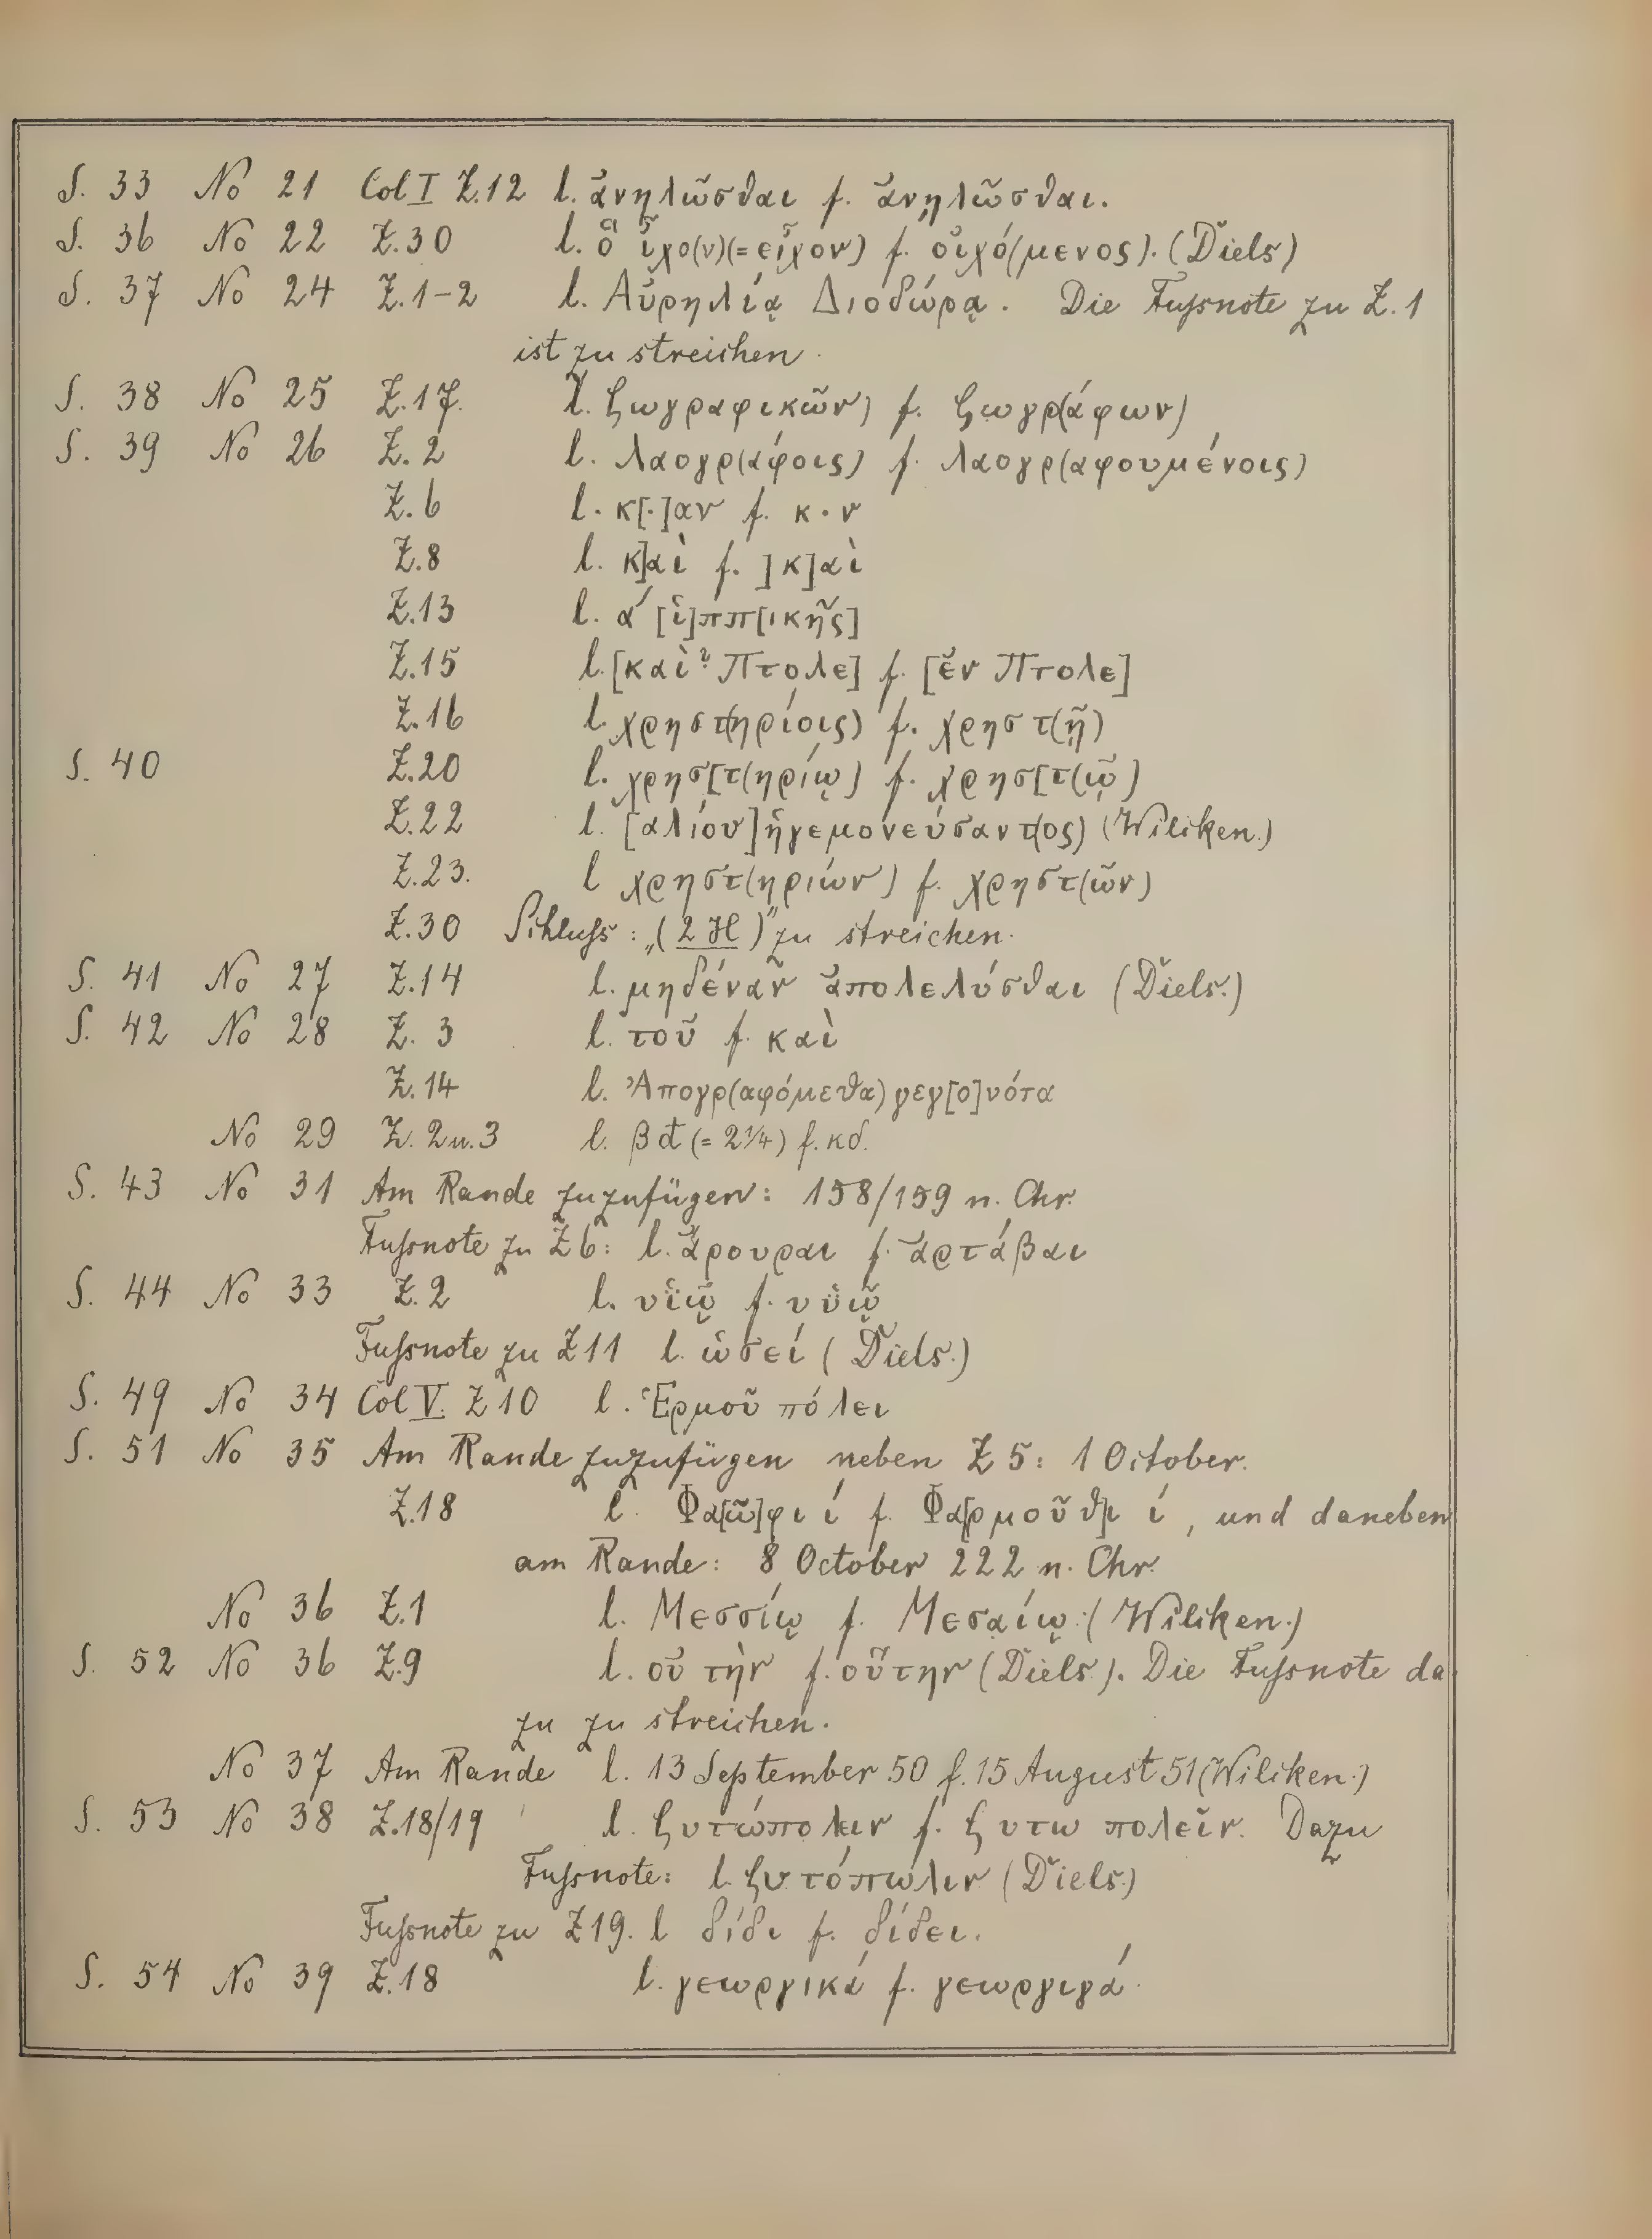 S. 33 No 21 Col I Z.12 l. ἀνηλῶσθαι f. ἀνῃλῶσθαι.
S. 36 No 22 Z.30 l. ἃ ἶχο(ν)(=εἶχον) f. οἰχό(μενος). (Diels)
S. 37 No 24 Z.1-2 l. Αὐρηλίᾳ Διοδώρᾳ. Die Fussnote zu Z.1
ist zu streichen.
S. 38 No 25 Z.17. l. ζωγραφικῶν) f. ζωγρ(άφων)
S. 39 No 26 Z. 2 l. λαογρ(άφοις) f. λαογρ(αφουμένοις)
Z.6 l. κ[.]αν f. κ . ν
Z.8 l. κ]αὶ f. ]κ]αὶ
Z.13 l. α´ [ἱ]ππ[ικῆς]
Z.15 l. [καὶ? Πτολε] f. [ἐν Πτολε]
Z.16 l. χρηστ(ηρίοις) f. χρηστ(ῇ)
S. 40 Z.20 l. χρησ[τ(ηρίῳ) f. χρησ[τ(ῷ)
Z.22 l. [αλίου] ἡγεμονεύσαντ(ος) (Wilcken.)
Z.23. l χρηστ(ηρίων) f. χρηστ(ῶν)
Z.30 Schluss: „(2 H)" zu streichen.
S. 41 No 27 Z.14 l. μηδέναν ἀπολελύσθαι (Diels.)
S. 42 No 28 Z. 3 l. τοῦ f. καὶ
Z.14 l. Ἀπογρ(αφόμεθα) γεγ[ο]νότα
No 29 Z. 2 u. 3 l. β đ (= 2 1/4) f. κδ.
S. 43 No 31 Am Rande zuzufügen: 158/159 n. Chr.
Fussnote zu Z 6: l. ἄρουραι f. ἀρτάβαι
S. 44 No 33 Z.2 l. υἱῷ f. υἱῷ
Fussnote zu Z 11 l. ὡσεί (Diels.)
S. 49 No 34 Col V. Z 10 l. Ἑρμοῦ πόλει
S. 51 No 35 Am Rande zuzufügen neben Z 5: 1 October.
Z.18 l. Φα[ῶ]φι ί f. Φα[ρμοῦθ]ι ί, und daneben
am Rande: 8 October 222 n. Chr.
No 36 Z.1 l. Μεσσίῳ f. Μεσαίῳ. (Wilcken.)
S. 52 No 36 Z.9 l. οὐ τὴν f. οὔτην (Diels.). Die Fussnote da
zu zu streichen.
No 37 Am Rande l. 13 September 50 f. 15 August 51 (Wilcken.)
S. 53 No 38 Z.18/19 l. ζυτώπολιν f. ζυτω πολεῖν. Dazu
Fussnote: l. ζυτόπωλιν (Diels.)
Fussnote zu Z 19. l δίδι f. δίδει.
S. 54 No 39 Z.18 l. γεωργικά f. γεωργιγά.